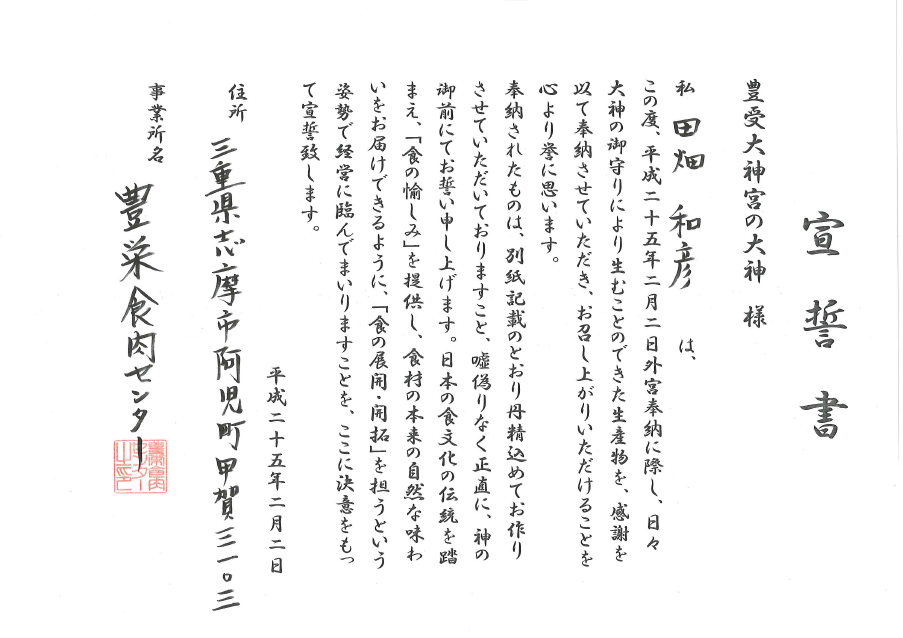 宣誓書
豊受大神宮の大神 様
私 田畑 和彦 は、
この度、平成二十五年二月二日外宮奉納に際し、日々
大神の御守りにより生むことのできた生産物を、感謝を
以て奉納させていただき、お召し上がりいただけることを
心より誉に思います。
奉納されたものは、別紙記載のとおり丹精込めてお作り
させていただいておりますこと、嘘偽りなく正直に、神の
御前にてお誓い申し上げます。日本の食文化の伝統を踏
まえ、「食の愉しみ」を提供し、食材の本来の自然な味わ
いをお届けできるように、「食の展開・開拓」を担うという
姿勢で経営に臨んでまいりますことを、ここに決意をもっ
て宣誓致します。
平成二十五年二月二日
住所 三重県志摩市阿児町甲賀三一〇三
事業所名 豊栄食肉センター